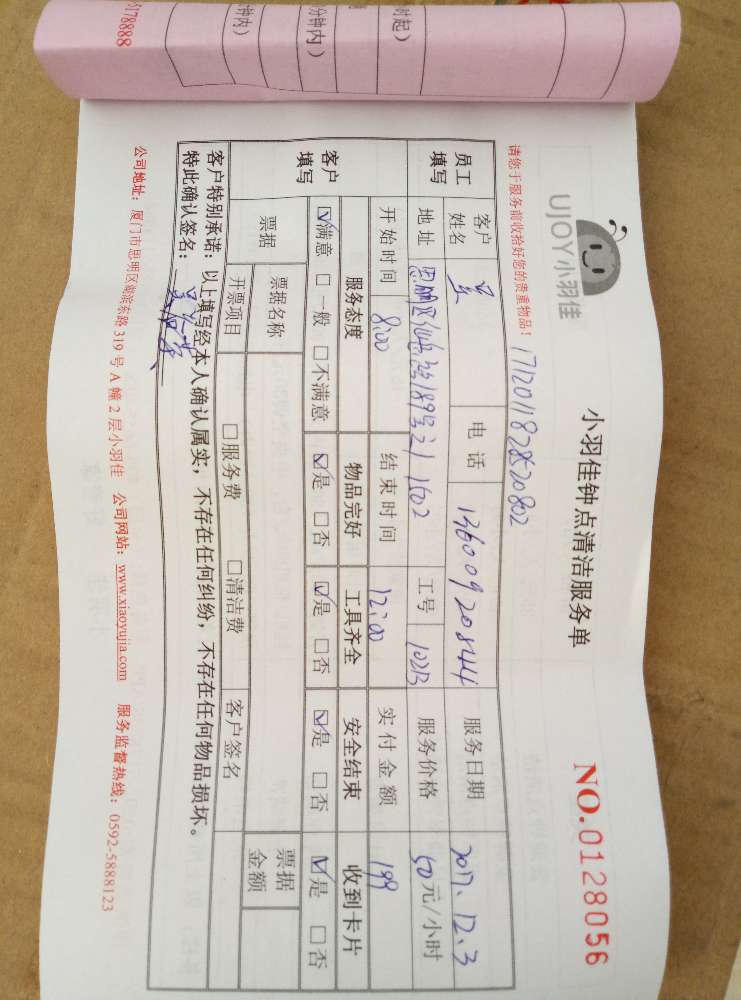 5178888
钟内）
分钟内）
时起）
UJOY小羽佳
小羽佳钟点清洁服务单
NO.0128056
请您于服务前收拾好您的贵重物品！
1712011828520802
员工填写
客户姓名 吴 电话 13600920844 服务日期 2017.12.3
地址 思明区仙岳路189号21 1602 工号 102B 服务价格 50元/小时
开始时间 8:00 结束时间 12:00 实付金额 199
客户填写
服务态度 物品完好 工具齐全 安全结束 收到卡片
☑满意 □一般 □不满意 ☑是 □否 ☑是 □否 ☑是 □否 ☑是 □否
票据 票据名称 票据金额
开票项目 □服务费 □清洁费 客户签名
客户特别承诺：以上填写经本人确认属实，不存在任何纠纷，不存在任何物品损坏。
特此确认签名：
公司地址：厦门市思明区湖滨东路319号A幢2层小羽佳 公司网站：www.xiaoyujia.com 服务监督热线：0592-5888123